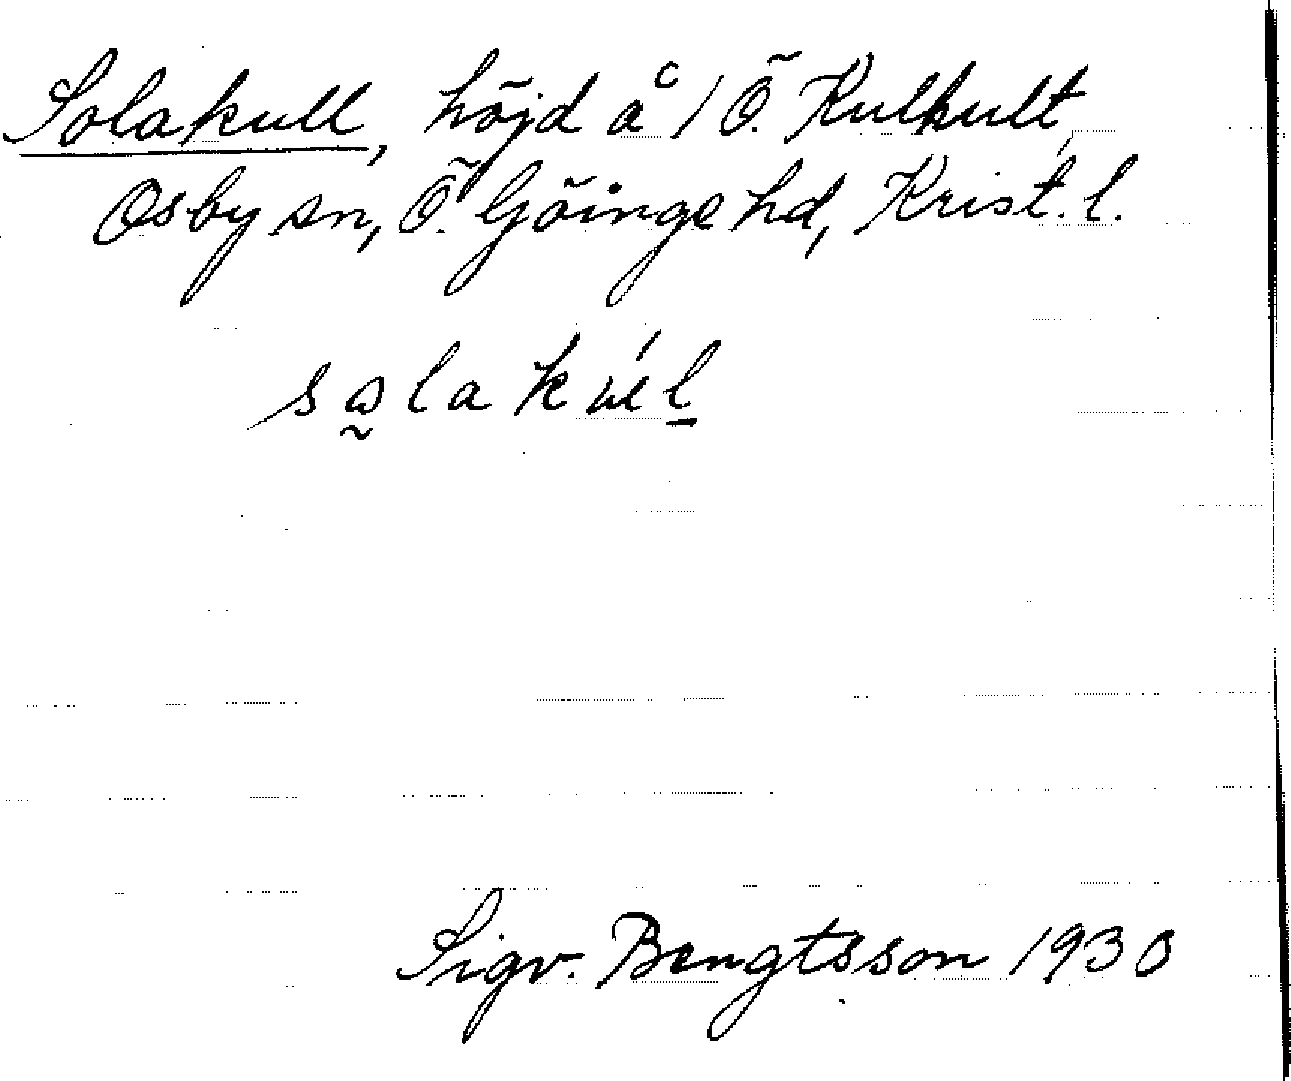 Solakull, höjd å 1 Ö. Kulhult,
Osby sn, Ö. Göinge hd, Krist. l.
Sigv. Bengtsson 1930